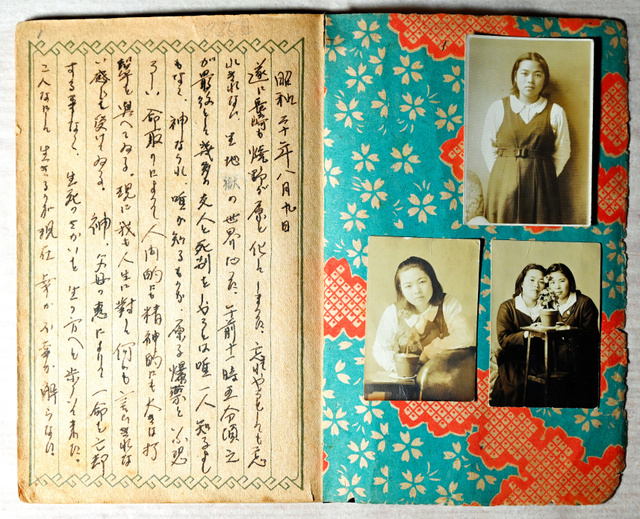 昭和二十年八月九日
遂に長崎も焼野が原と化してしまった、忘れやうとしても忘
れきれない生地獄の世界だった 午前十一時五分頃之
が最後として幾多の友人と死別しやうとは唯一人知るもの
もなく、神ならぬ唯が知るものか 原子爆弾と云ふ恐
ろしい命取りによって人間的にも精神的にも大きな打
撃を與へてゐる。現に我も人生に對して何とも言ひきれな
い感じを受けてゐる。神、父母の恵によりて一命も亡却
する事なく、生死のさかいを生の方へと歩いて来た。
こんなにして生きるのが現在幸か不幸か解らない